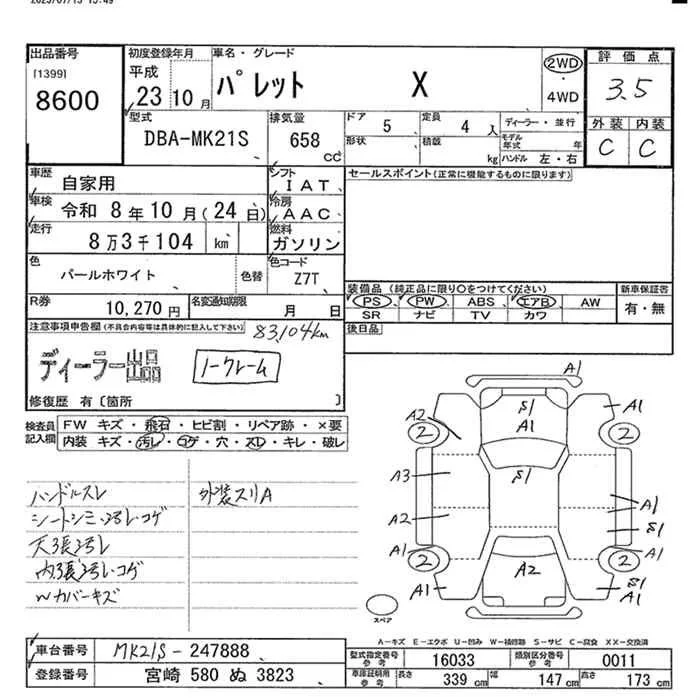 2025/07/15 15:49
出品番号 初度登録年月 車名・グレード 評価点
[1399] 平成 パレット X 2WD 3.5
8600 23年10月 4WD
型式 排気量 ドア 5 定員 4人 ディーラー・並行 外装 内装
DBA-MK21S 658 CC 形状 積載 kg モデル年式 年 C C
ハンドル 左・右
車歴 自家用 シフト IAT セールスポイント(正常に機能するものに限ります)
車検 令和 8年10月(24日) 冷房 AAC
走行 8万3千104 km 燃料 ガソリン
色 パールホワイト 色替 色コード Z7T
装備品(純正品に限り○をつけてください) 新車保証書
PS PW ABS エアB AW 有・無
SR ナビ TV カワ
R券 10,270円 名変通知期限 月 日
後日品
注意事項申告欄(不具合内容等は具体的に記入して下さい) 83,104km
ディーラー出品 ノークレーム
修復歴 有〔箇所 〕
検査員記入欄 FW キズ・飛石・ヒビ割・リペア跡・×要
内装 キズ・汚レ・コゲ・穴・スレ・キレ・破レ
ハンドルスレ 外装スリA
シートシミ・汚レ・コゲ
天張汚レ
内張汚レ・コゲ
Wカバーキズ
A1
S1 A1
A1
A2 2 2
S1
A3
A2 A1
S1
A1 2 2 A1
A2
A1 S1
A1
スペア
A-キズ E-エクボ U-凹み W-補修跡 S-サビ C-腐食 XX-交換済
車台番号 MK21S-247888
登録番号 宮崎 580 ぬ 3823
型式指定番号 参考 16033 類別区分番号 参考 0011
車庫証明用 参考 長さ 339 cm 幅 147 cm 高さ 173 cm